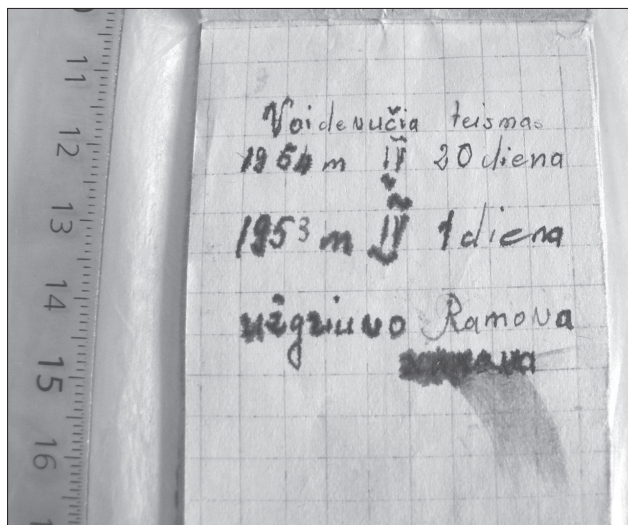 11
12
13
14
15
16
Voidenučia teismas
1954 m IV 20 diena
1953 m IV 1 diena
užgriuvo Ramova